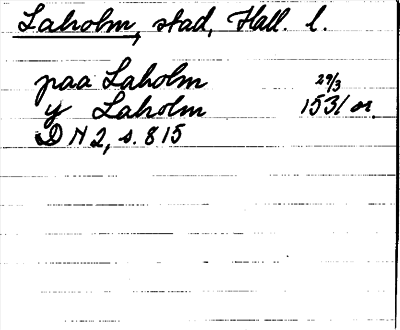 Laholm, stad, Hall. l.
paa Laholm 29/3
y Laholm 1531 or.
D N 2, s. 815